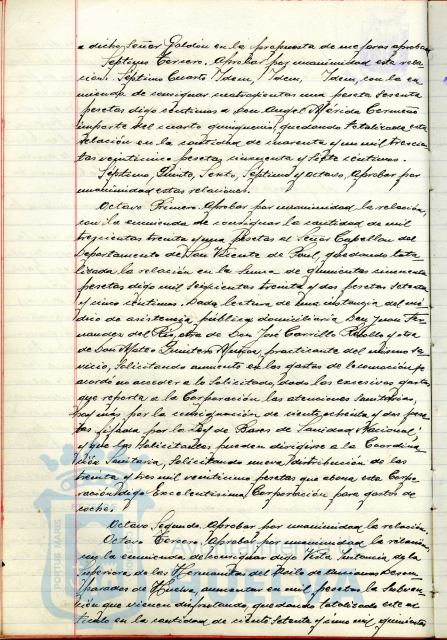 a dicho Señor Galdón en la propuesta de mejoras aprobar
Séptimo Tercero. Aprobar por unanimidad esta rela-
ción. Séptimo Cuarto Idem, Idem, Idem, con la en-
mienda de consignar cuatrocientas una peseta sesenta
pesetas digo céntimos a Don Angel Mérida Cermeño
importe del cuarto quinquenio, quedando totalizada esta
relación en la cantidad de cuarenta y un mil trescien-
tas veinticinco pesetas cincuenta y siete céntimos.
Séptimo, Quinto, Sexto, Septimo y Octavo, Aprobar por
unanimidad estas relaciones.
Octavo Primero. Aprobar por unanimidad la relación,
con la enmienda de consignar la cantidad de mil
trescientas treinta y una Pesetas al Señor Capellan del
Departamento de San Vicente de Paul, quedando tota-
lizada la relación en la suma de quinientas cincuenta
pesetas digo mil seiscientas treinta y dos pesetas setenta
y cinco céntimos. Dada lectura de una instancia del mé-
dico de asistencia pública domiciliaria Don Juan Fer-
nandez del Rio, otra de Don José Carrillo y otra
de Don Mateo Quintero Muñoz, practicante del mismo ser-
vicio, Solicitando aumento en los gastos de locomoción se
acordó no acceder a lo Solicitado, dado los excesivos gastos
que reporta a la Corporación las atenciones Sanitarias,
hay más por la consignación de ciento ochenta y dos pese-
tas fijada por la Ley de Bases de Sanidad Nacional;
y que los Solicitantes pueden dirigirse a la Coordina-
ción Sanitaria, Solicitando nueva distribución de las
treinta y tres mil veinticinco pesetas que abona esta Corpo-
ración digo Excelentísima Corporación para gastos de
coche.
Octavo, Segundo. Aprobar por unanimidad la relación.
Octavo Tercero. Aprobar por unanimidad la relación,
con la enmienda de consignar digo Vista Instancia de la
Superiora de las Hermanitas del Asilo de Ancianos Desam-
parados de Huelva, aumentar en mil pesetas la Subven-
ción que vienen disfrutando, quedando totalizado este ar-
tículo en la cantidad de ciento setenta y cinco mil quinientas